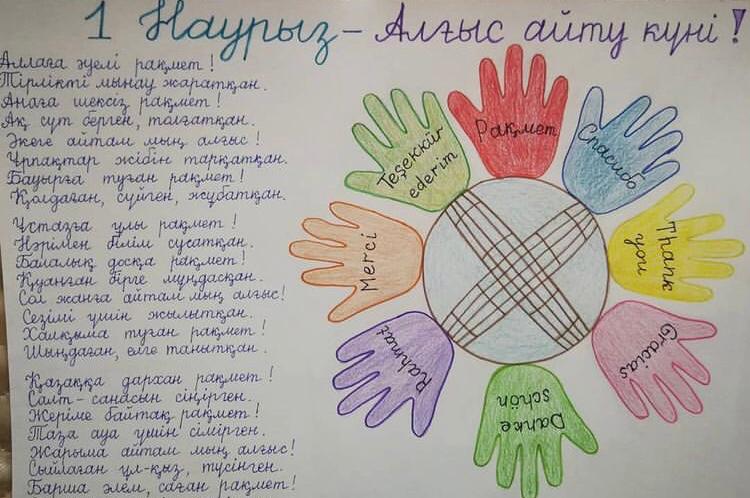 1 Наурыз - Алғыс айту күні!
Аллаға әуелі рақмет!
Тірлікті мынау жаратқан.
Анаға шексіз рақмет!
Ақ сүт берген, толғатқан.
Әкеге айтам мың алғыс!
Ұрпақтар жібін тарқатқан.
Бауырға туған рақмет!
Қолдаған, сүйген, жұбатқан.
Ұстазға ұлы рақмет!
Нәрімен білім сусатқан.
Балалық досқа рақмет!
Қуанған бірге мұңдасқан.
Сол жанға айтам мың алғыс!
Сезімі үшін жылытқан.
Халқыма туған рақмет!
Шыңдаған, елге танытқан.
Қазаққа дархан рақмет!
Салт-санасын сіңірген.
Жеріме байтақ рақмет!
Таза ауа үшін сімірген.
Жарыма айтам мың алғыс!
Сыйлаған ұл-қыз, түсінген.
Барша әлем, саған рақмет!
Рақмет
Спасибо
Thank
you
Gracias
Danke
schön
Rahmat
Merci
Teşekkür
ederim